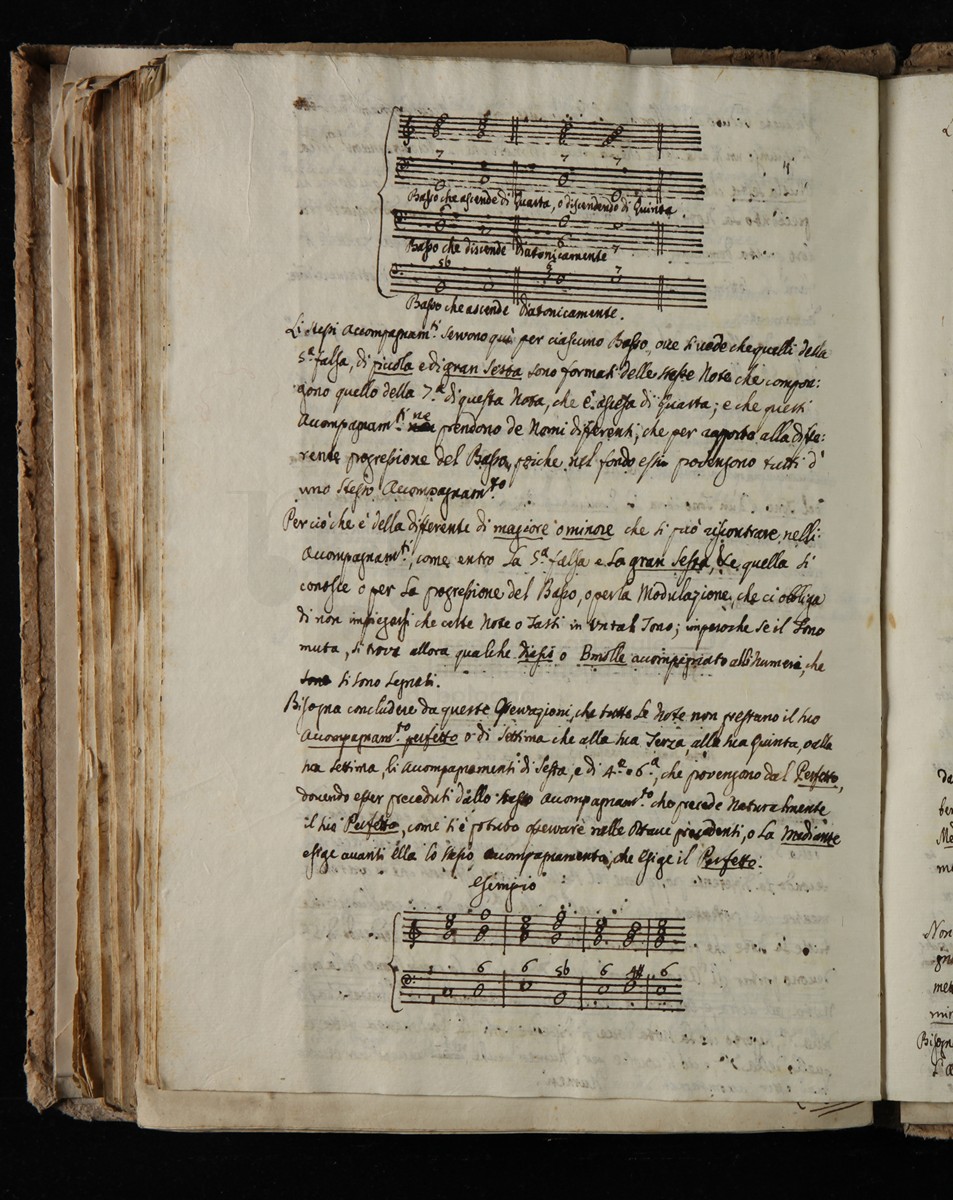 7 7 7
Basso che ascende di Quarta, o discendendo di Quinta.
6 7
Basso che discende Diatonicamente
5b 7
Basso che ascende Diatonicamente.
Li stessi Accompagnam.ti servono quì per ciascuno Basso, ove si vede che quelli della
5.a falsa, di piccola e di gran Sesta sono formati delle stesse Note che compon:
gono quello della 7.a di questa Nota, che è ascesa di Quarta; e che questi
Acompagnam.ti ne prendono de Nomi differenti, che per rapporto alla diffe:
rente progressione del Basso, poiche nel fondo essi provengono tutti d'
uno stesso Accompagnam.to
Per ciò che è della differente di magiore o minore che si può riscontrare nelli
Accompagnam.ti, come entro la 5.a falsa e La gran Sesta, &c, quella si
conosce o per La progressione del Basso, o per la Modulazione, che ci obbliga
di non impiegarsi che certe Note o Tasti in un tal Tono; imperoche se il Tono
muta, si trova allora qualche Diesis o Bmolle accompagnato alli numeri, che
si sono segnati.
Bisogna concludere da queste Osservazioni, che tutte Le Note non prestano il suo
Accompagnam.to perfetto o di Settima che alla sua Terza, alla sua Quinta, o alla
sua Settima, li Accompagnamenti di Sesta, e di 4.a e 6.a, che provengono dal Perfetto,
dovendo esser preceduti dallo stesso Acompagnam.to che precede Naturalmente
il suo Perfetto, come si è potuto osservare nelle Ottave precedenti, o La Mediante
esige avanti Ella lo stesso accompagnamento, che esige il Perfetto.
Esempio
6 6 5b 6 4# 6